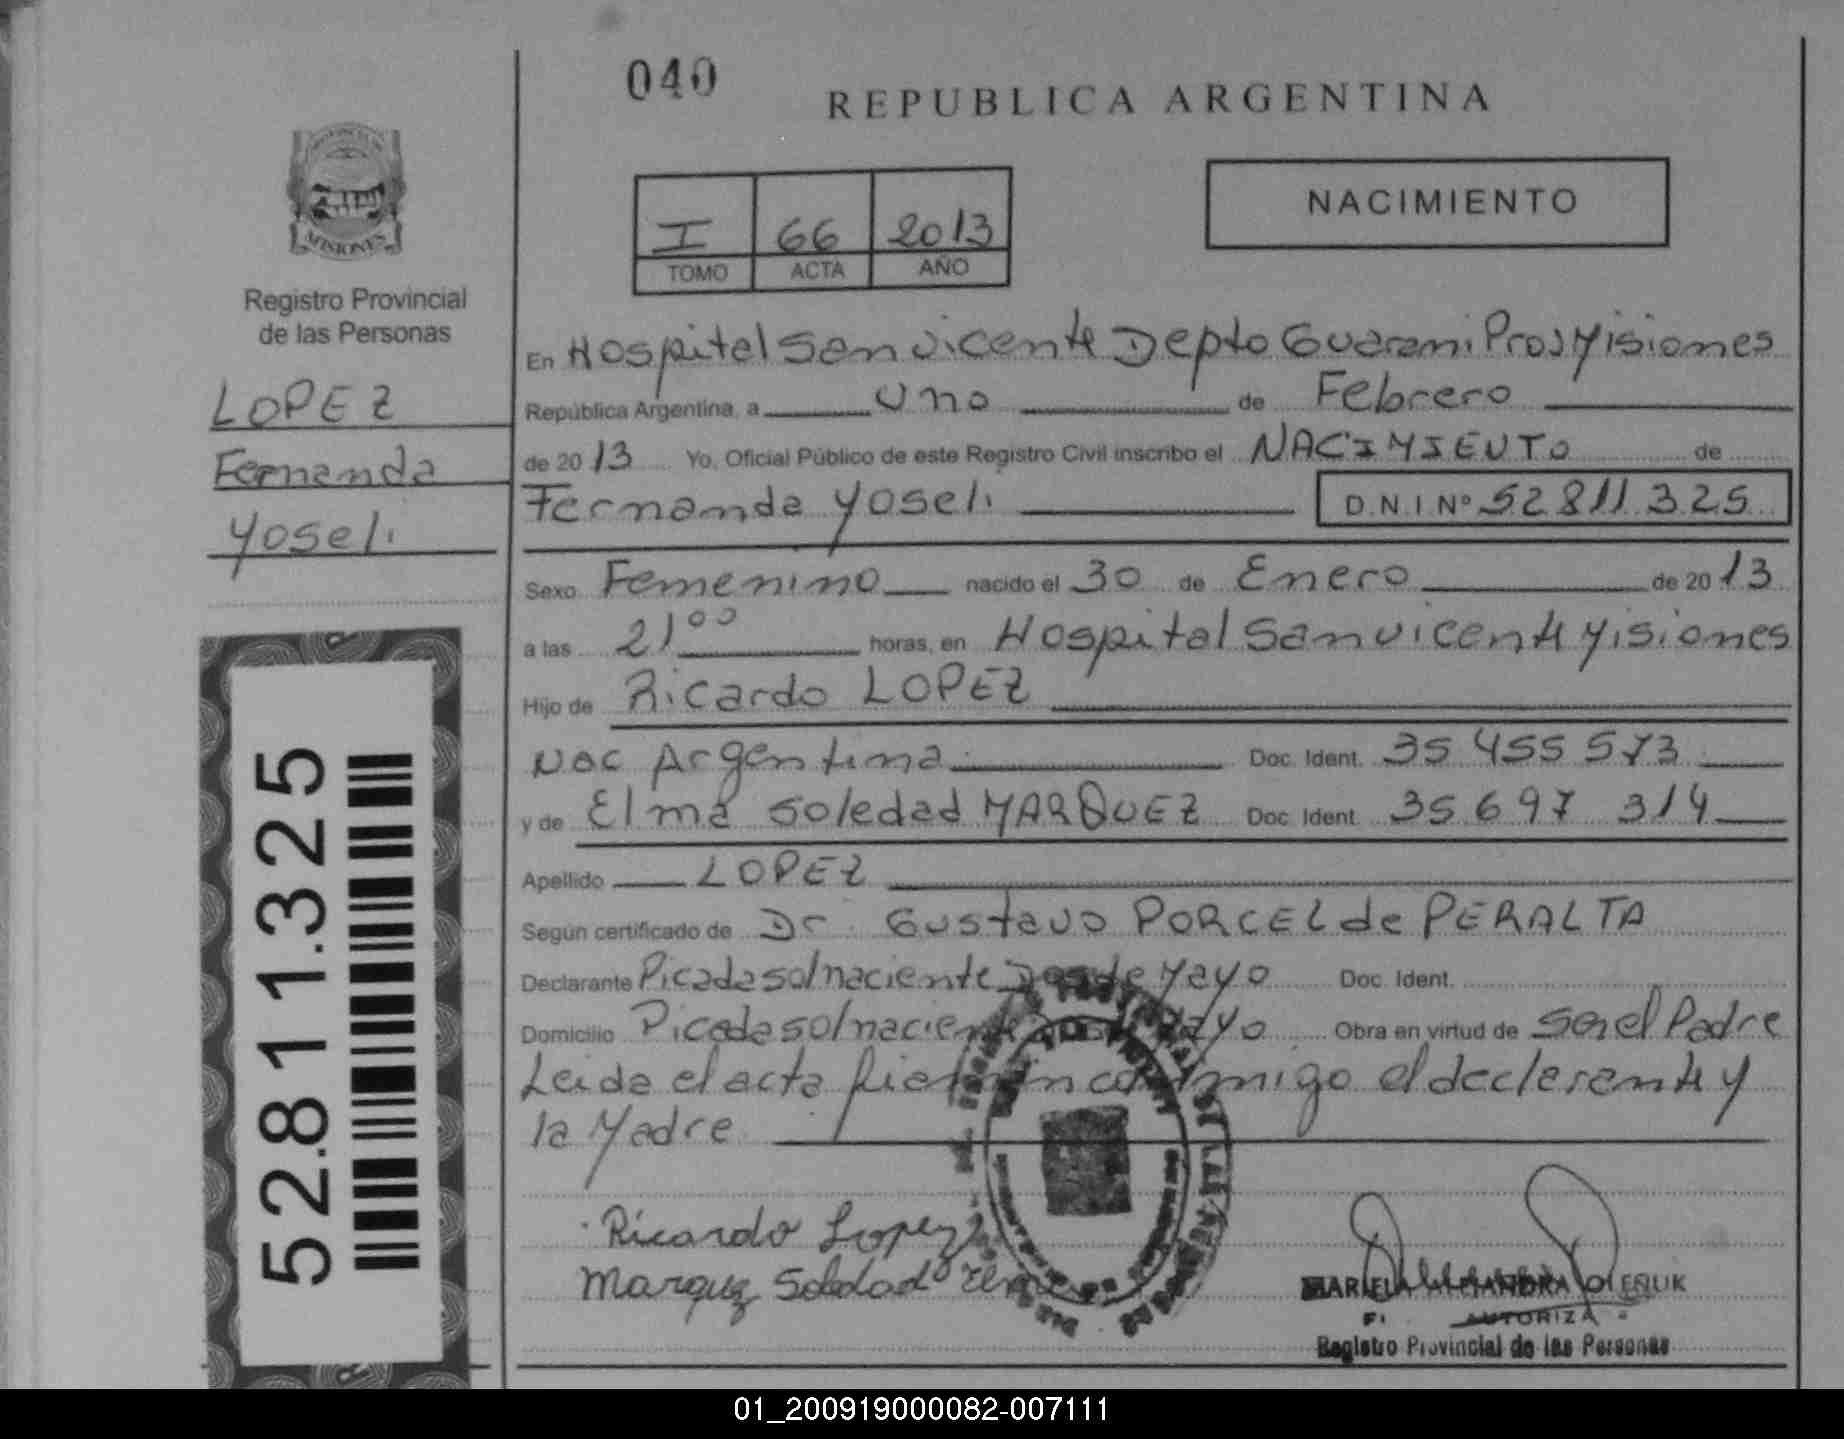 040
REPUBLICA ARGENTINA
MISIONES
Registro Provincial
de las Personas
I 66 2013
TOMO ACTA AÑO
NACIMIENTO
LOPEZ
Fernanda
Yoseli
En Hospital San vicente Depto Guarani Prov Misiones
República Argentina, a uno de Febrero
de 2013 Yo, Oficial Público de este Registro Civil inscribo el NACIMIENTO de
Fernanda Yoseli D.N.I Nº 52 811 325
Sexo Femenino nacido el 30 de Enero de 2013
a las 21⁰⁰ horas, en Hospital San vicente Misiones
Hijo de Ricardo LOPEZ
Nac Argentina Doc. Ident. 35 455 573
y de Elma Soledad MARQUEZ Doc. Ident. 35 697 314
Apellido LOPEZ
Según certificado de Dr. Gustavo PORCEL de PERALTA
Declarante Picada sol naciente Dos de Mayo Doc. Ident.
Domicilio Picada sol naciente Mayo Obra en virtud de Ser el Padre
Leida el acta conmigo el declarante y
la Madre
Ricardo Lopez
Marquz Soledad Elma
OLEÑUK
AUTORIZA
Registro Provincial de las Personas
52.811.325
01_200919000082-007111